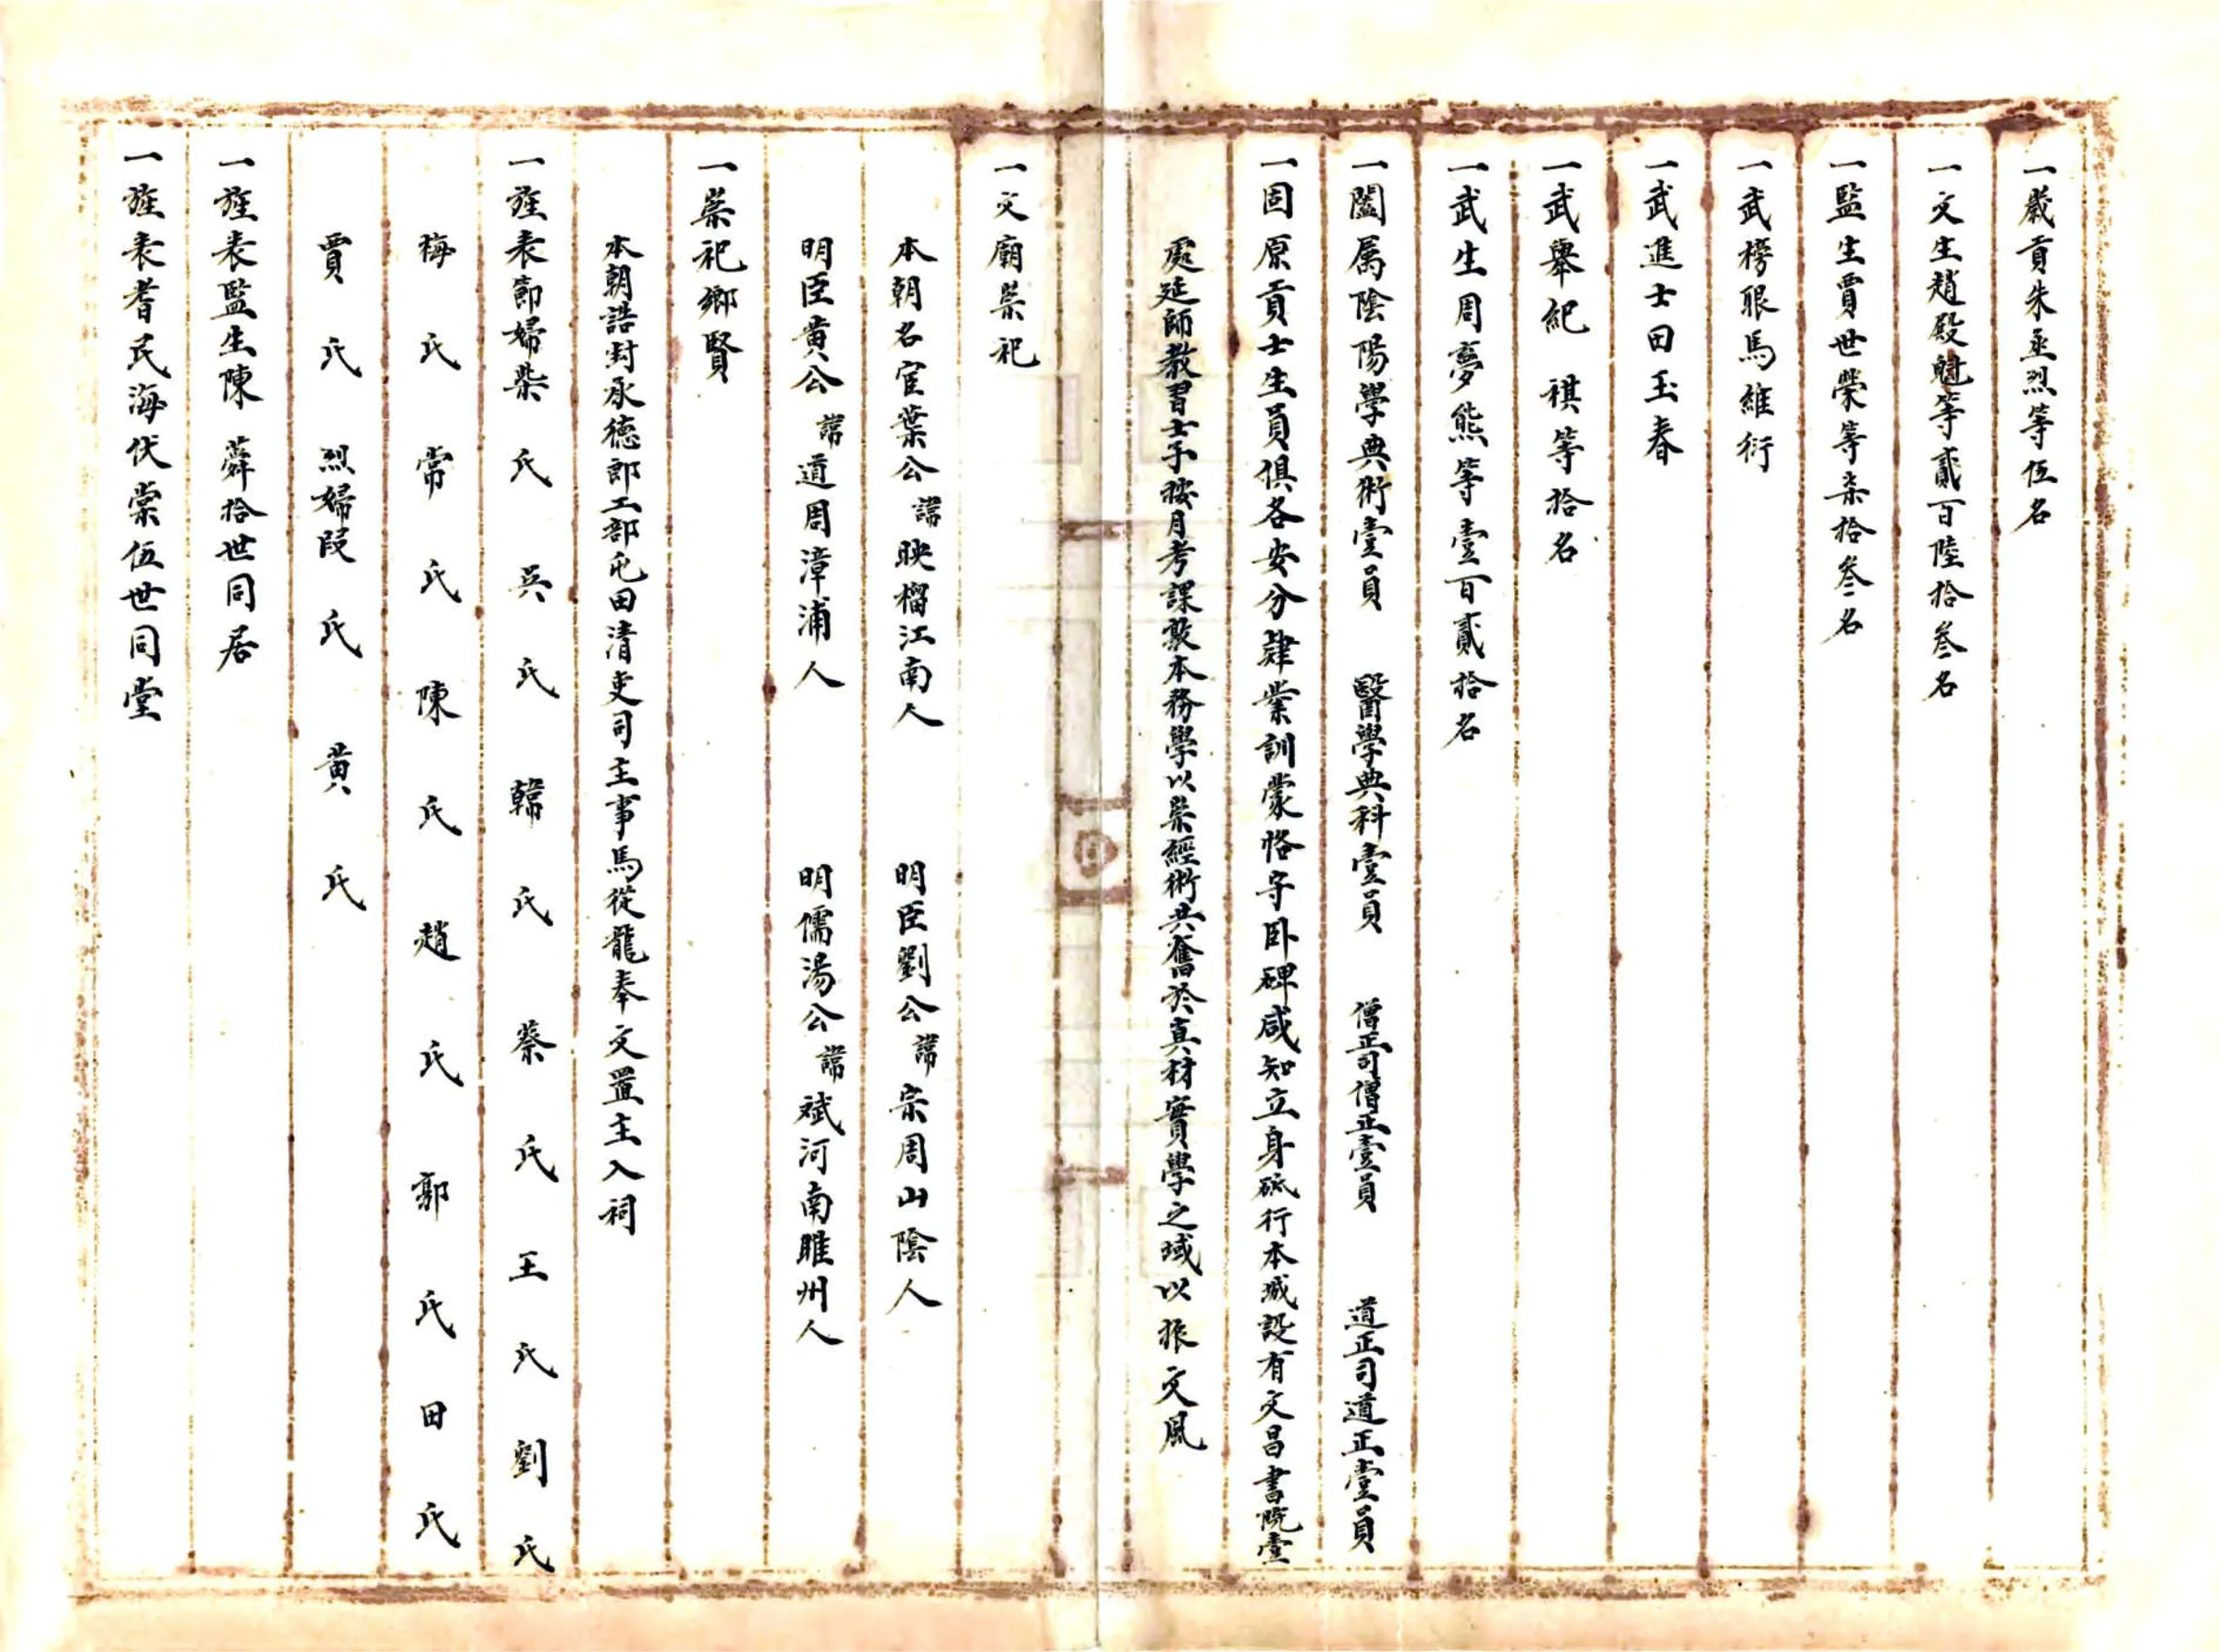 一歲貢朱丞烈等伍名
一文生趙殿魁等貳百陸拾叁名
一監生賈世榮等柒拾叁名
一武榜眼馬維衍
一武進士田玉春
一武舉紀 祺等拾名
一武生周夢熊等壹百貳拾名
一闔属陰陽學典術壹員 醫學典科壹員 僧正司僧正壹員 道正司道正壹員
一固原貢士生員俱各安分肄業訓蒙恪守卧碑咸知立身砥行本城設有文昌書院壹
處延師教習士子按月考課敦本務學以崇經術共奮於真材實學之域以振文風
一文廟崇祀
本朝名宦葉公諱映榴江南人 明臣劉公諱宗周山陰人
明臣黄公諱道周漳浦人 明儒湯公諱斌河南睢州人
一崇祀鄉賢
本朝誥封承德郎工部屯田清吏司主事馬從龍奉文置主入祠
一旌表節婦柴氏 吳氏 韓氏 蔡氏 王氏 劉氏
梅氏 常氏 陳氏 趙氏 郭氏 田氏
賈氏 烈婦段氏 黄氏
一旌表監生陳 舜拾世同居
一旌表耆民海伏棠伍世同堂